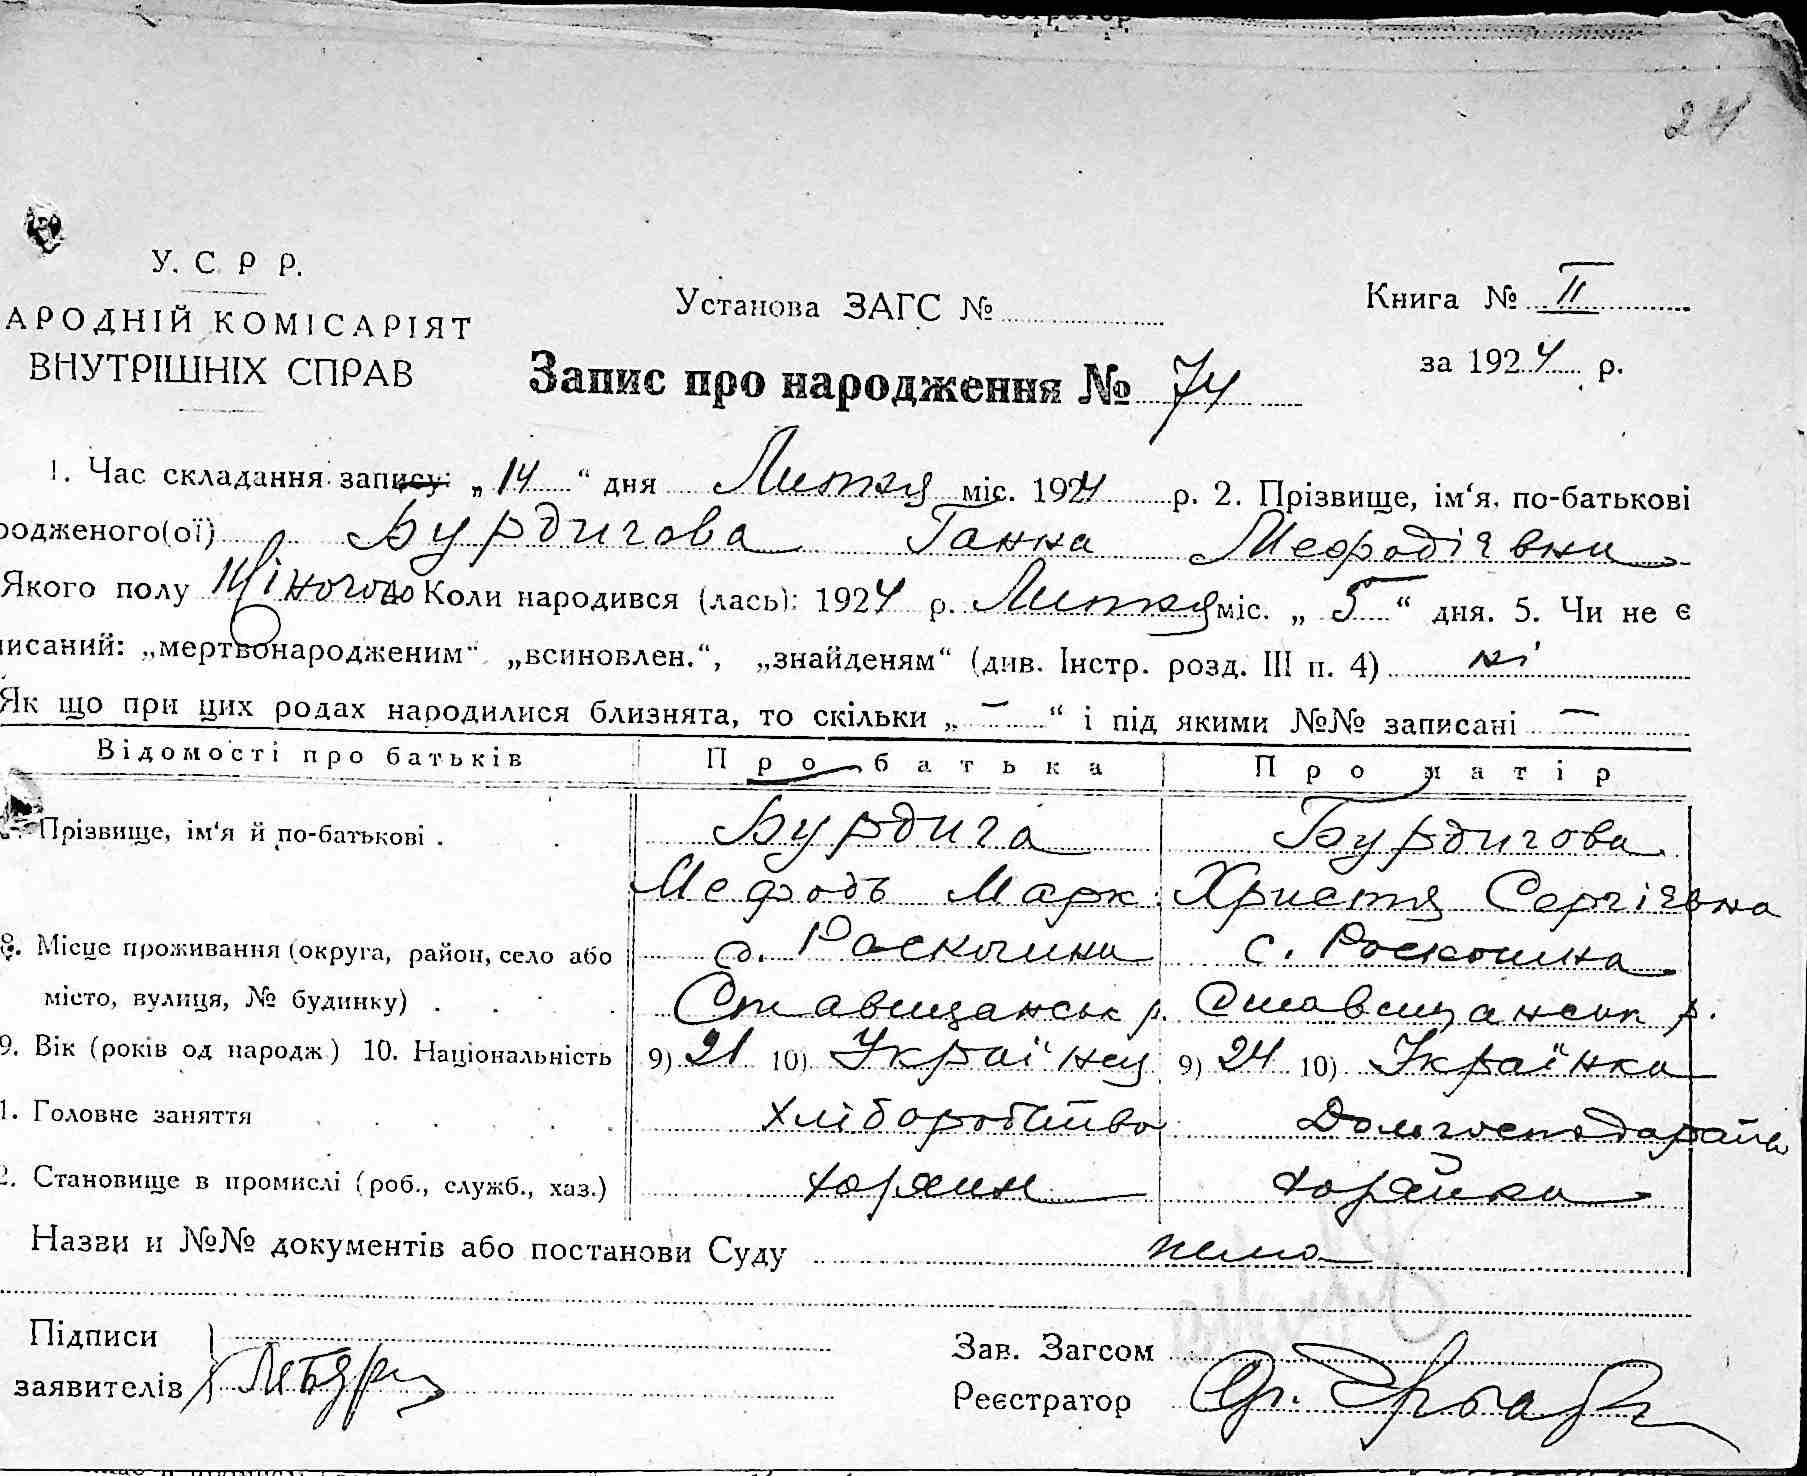 24
У. С Р Р.
АРОДНІЙ КОМІСАРІЯТ
ВНУТРІШНІХ СПРАВ
Установа ЗАГС №
Книга № II
за 1924 р.
Запис про народження № 74
1. Час складання запису: „ 14 “ дня Лютня міс. 1924 р. 2. Прізвище, ім‘я, по-батькові
родженого(ої) Бурдигова Ганна Мефодієвни
Якого полу Жіночого Коли народився (лась): 1924 р. Лютня міс. „ 5 “ дня. 5. Чи не є
писаний: „мертвонародженим“ „всиновлен.“, „знайденям“ (див. Інстр. розд. III п. 4) ні
Як що при цих родах народилися близнята, то скільки „ — “ і під якими №№ записані —
Відомості про батьків Про батька Про матір
Прізвище, ім‘я й по-батькові . Бурдига Бурдигова
Мефодь Марк. Христя Сергієвна
8. Місце проживання (округа, район, село або с. Роскошна с. Роскошна
місто, вулиця, № будинку) . Ставищанськ р. Ставищанськ р.
9. Вік (років од народж) 10. Національність 9) 21 10) Українец 9) 24 10) Українка
1. Головне заняття хліборобство Домгосподарств
2. Становище в промислі (роб., служб., хаз.) хазяин хазяйка
Назви и №№ документів або постанови Суду нема
Підписи
заявителів
Зав. Загсом
Реєстратор